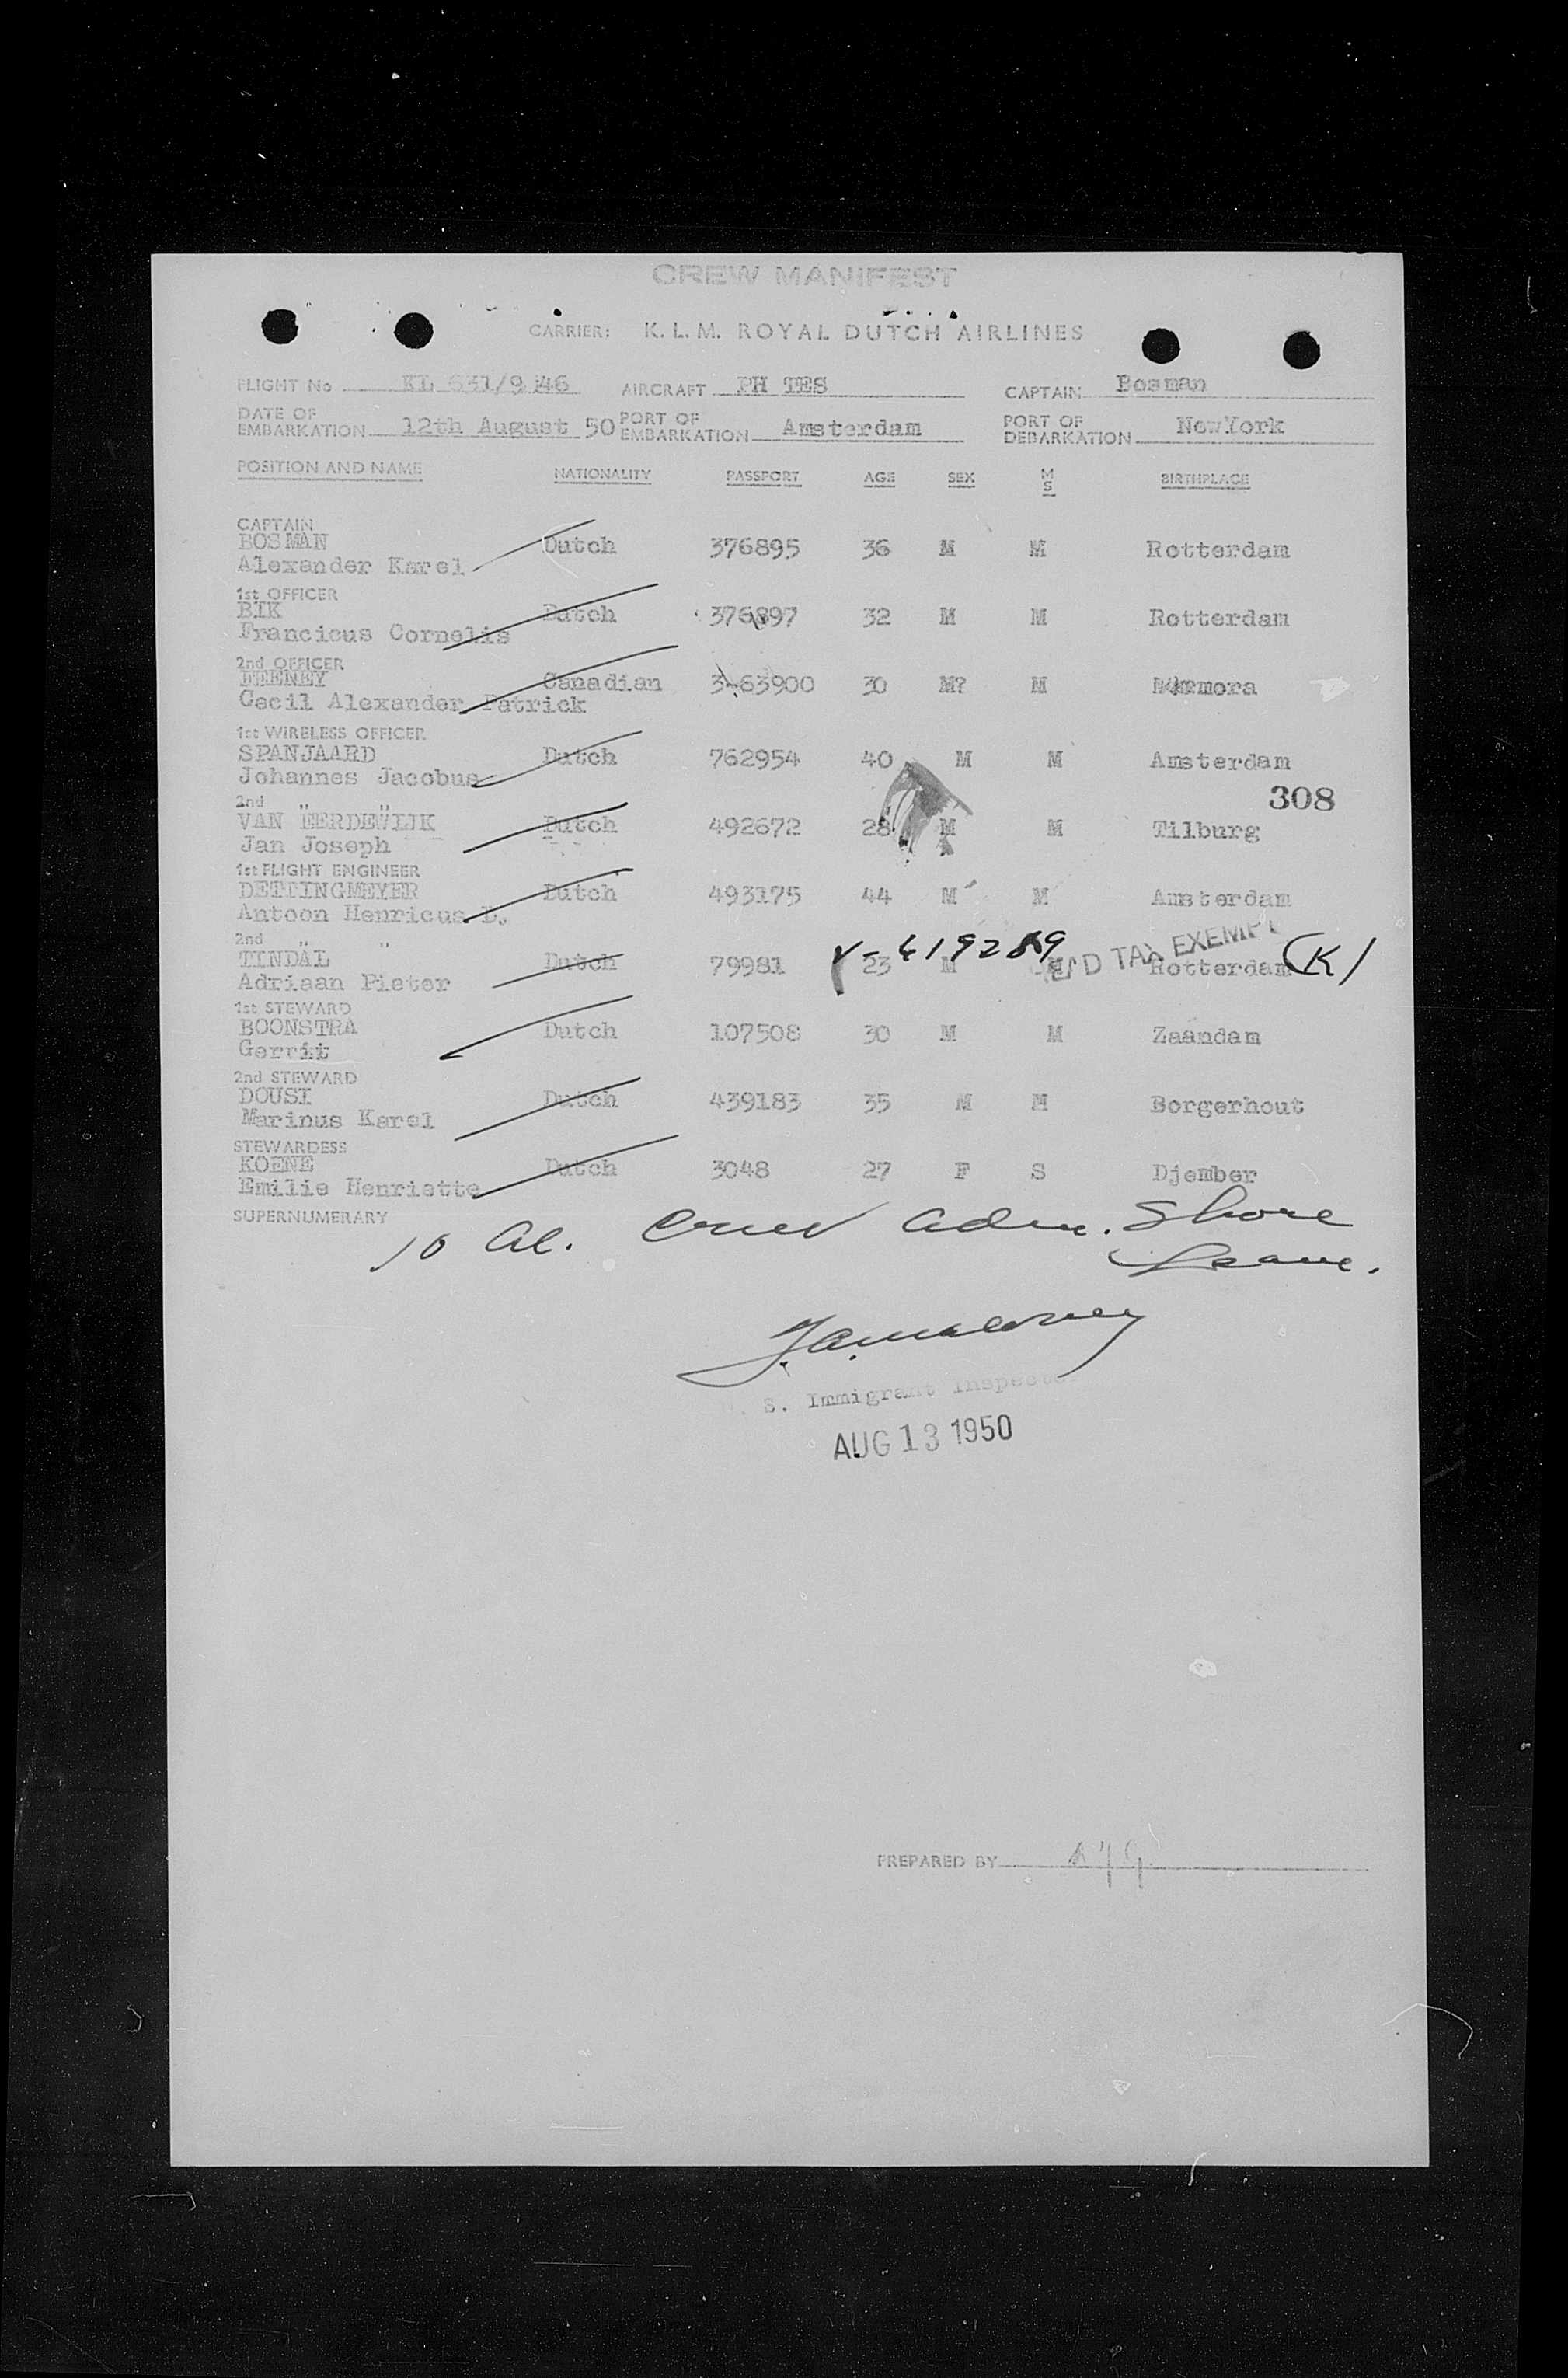 CREW MANIFEST
CARRIER: K. L. M. ROYAL DUTCH AIRLINES
FLIGHT No KL 631/9 146 AIRCRAFT PH TES CAPTAIN Bosman
DATE OF EMBARKATION 12th August 50 PORT OF EMBARKATION Amsterdam PORT OF DEBARKATION NewYork
POSITION AND NAME NATIONALITY PASSPORT AGE SEX M S BIRTHPLACE
CAPTAIN
BOSMAN Dutch 376895 36 M M Rotterdam
Alexander Karel
1st OFFICER
BIK Dutch 376897 32 M M Rotterdam
Francicus Cornelis
2nd OFFICER
FEENEY Canadian 3-63900 30 M? M Marmora
Cecil Alexander Patrick
1st WIRELESS OFFICER
SPANJAARD Dutch 762954 40 M M Amsterdam
Johannes Jacobus
308
2nd " "
VAN EERDEWIJK Dutch 492672 28 M M Tilburg
Jan Joseph
1st FLIGHT ENGINEER
DETTINGMEYER Dutch 493175 44 M M Amsterdam
Antoon Henricus L.
2nd " " V-419289 TAX EXEMPT (K)
TINDAL Dutch 79981 23 M Rotterdam
Adriaan Pieter
1st STEWARD
BOONSTRA Dutch 107508 30 M M Zaandam
Gerrit
2nd STEWARD
DOUSI Dutch 439183 35 M M Borgerhout
Marinus Karel
STEWARDESS
KOENE Dutch 3048 27 F S Djember
Emilie Henriette
SUPERNUMERARY
10 al. Crew adm. Shore
Leave.
S. Immigrant Inspecto
AUG 13 1950
PREPARED BY